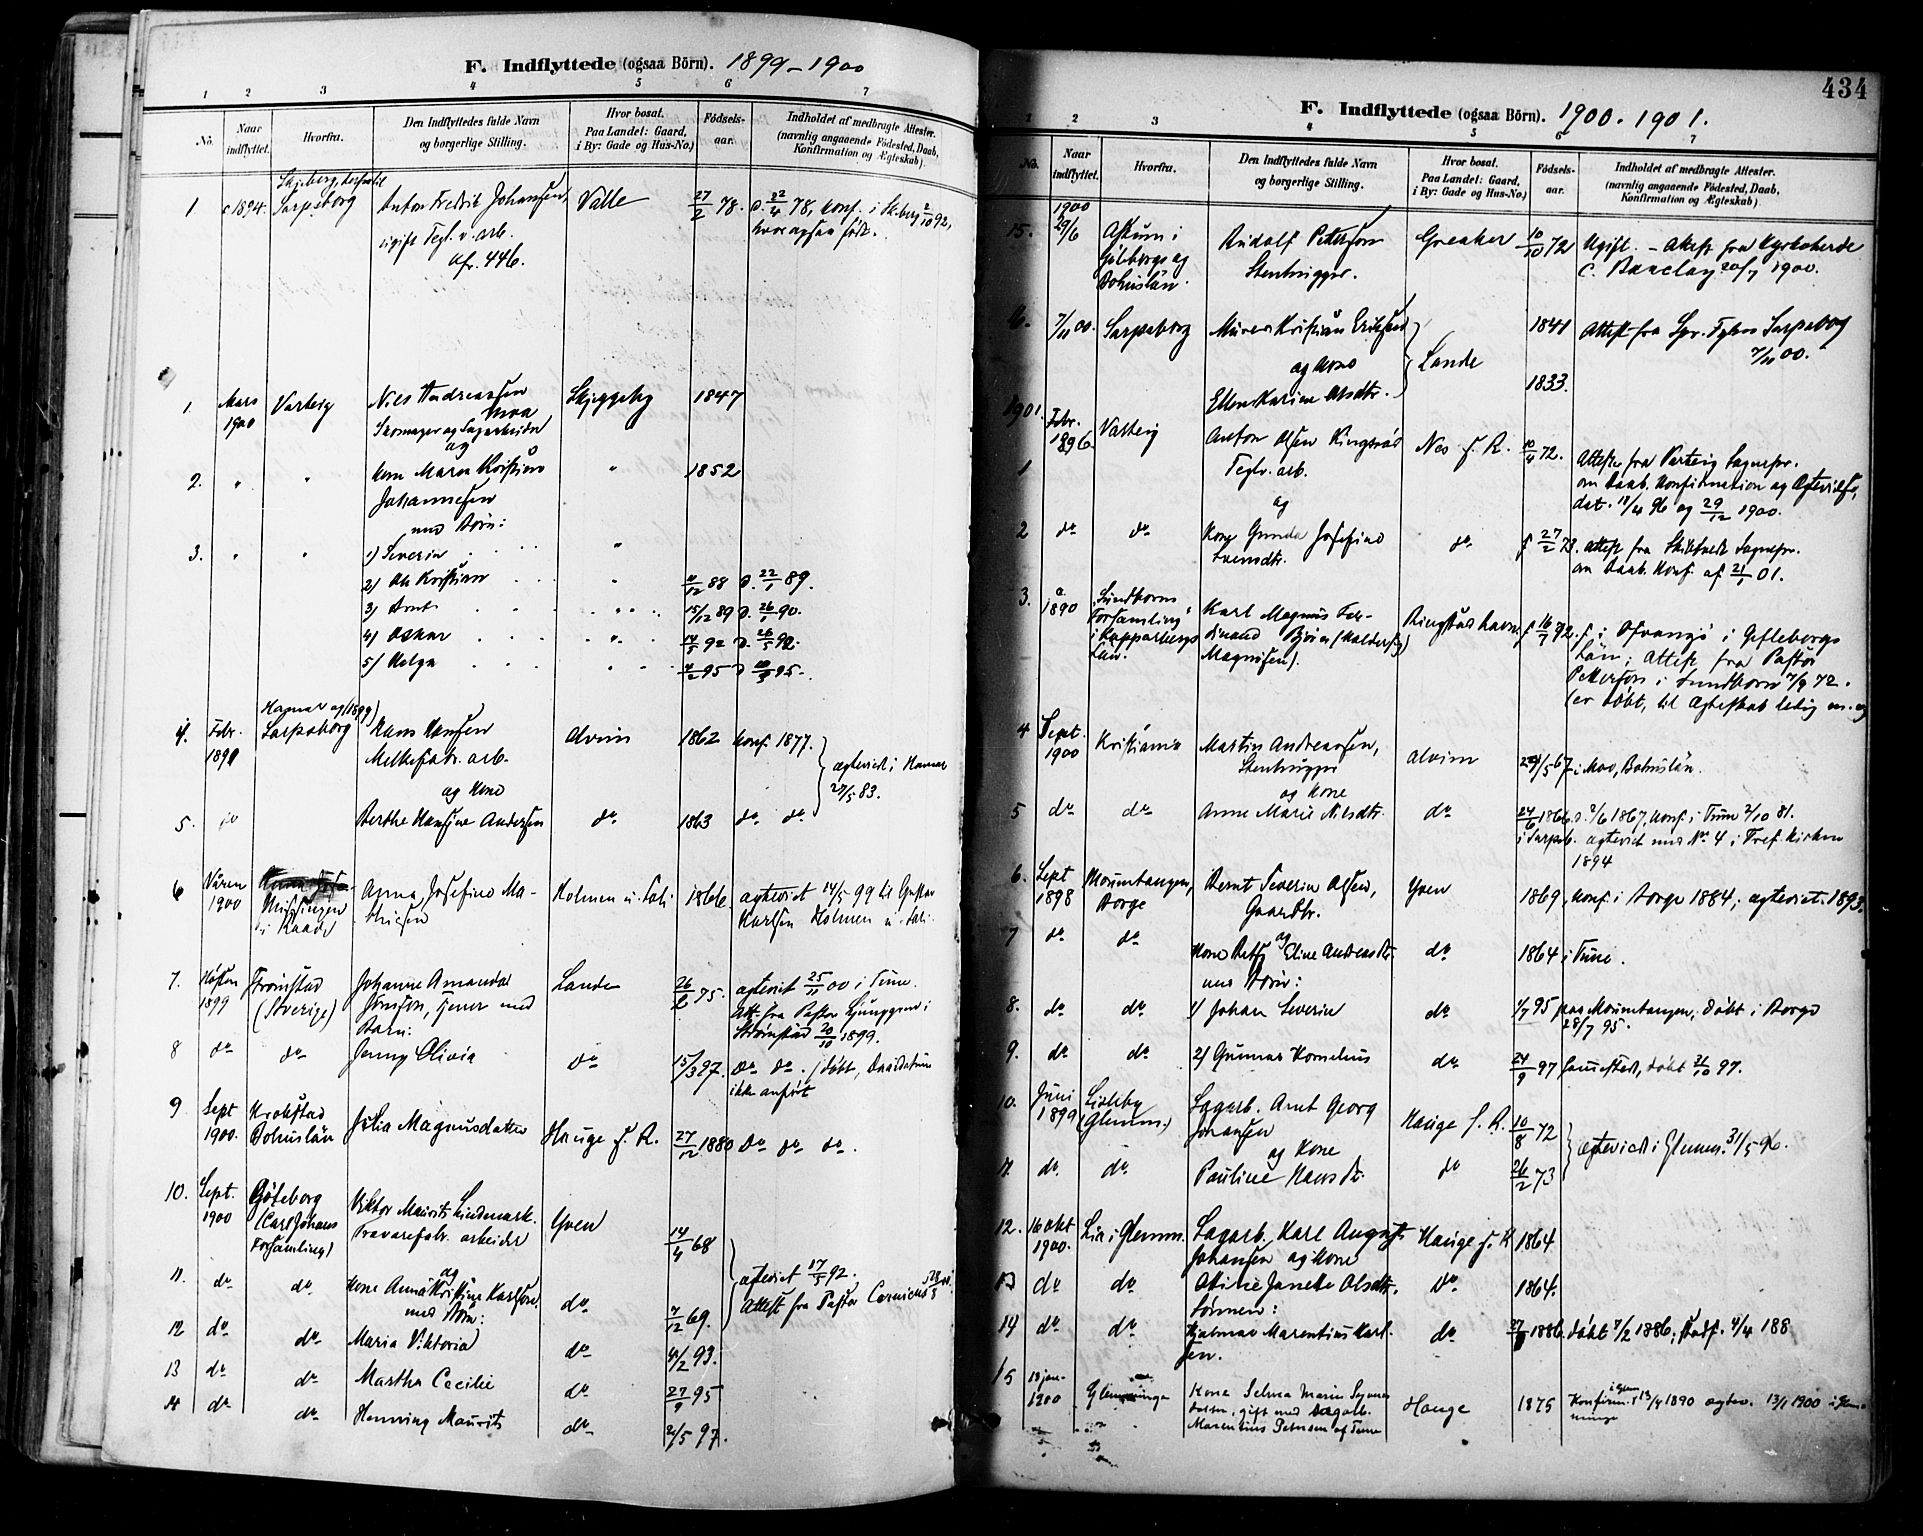 F. Indflyttede (ogsaa Börn). 1899-1900
1 2 3 4 5 6 7
No. Naar indflyttet. Hvorfra. Den Indflyttedes fulde Navn og borgerlige Stilling. Hvor bosat. Paa Landet: Gaard, i By: Gade og Hus-No.) Födsels-aar. Indholdet af medbragte Attester. (navnlig angaaende Födested, Daab, Konfirmation og Ægteskab)
1. 1894. Sarpsborg Anton Fredrik Johansen, Valle 27/2 78. 22/4 78, konf. i Skjeberg 2/10 92,
ugift Tegl.v. arb. hvor ogsaa födt.
446.
1. Mars 1900 Varteig Nils Andreassen Skjeggeby 1847
Skomager og Sagarbeider
og
2. " " Kone Maren Kristine " 1852
Johannesen
med Börn:
3. " " 1) Severin "
2) Ole Kristian " 11/12 88 D. 22/1 89.
3) Arnt " 15/12 89 D. 26/1 90.
4) Oskar " 92 D. 26/5 92.
5) Helga 95 D. 95.
Hamar og (1899)
4. Febr. Sarpsborg Hans Hansen Alvim 1862 Konf. 1877.
Melkefabr. arb. ægteviet i Hamar
og Kone 27/5 83.
5. Berthe Hansine Andersen do 1863 do do
6 Våren 1900 Missingen i Raade Anna Josefine Mathisen Holmen u. 1866 ægteviet 14/5 99 til Gustav
Karlsen Holmen u.
7. Hösten 1899 Strömstad (Sverige) Johanne Amanda Lande 26/2 75. ægteviet 25/11 00 i Tune.
Jonsson, tjener med Att. fra Pastor Ljunggren i
Barn: Strömstad 20/10 1899.
8 do do Jenny Olivia do 15/3 97. do do. födt, Daabsdatum
ikke anfört
9 Sept 1900. Krokstad Bohuslän Julia Magnusdatter Hauge f. R. 27/12 1880 do do do.
10. Sept. 1900 Göteborg (Carl Johans Forsamling) Viktor Maurits Lindemark. Yven 14/4 68
Travarefabr. arbeider
og ægteviet 17/5 92.
11. do do Kone Anna Kristine Karlsson. do 7/12 69. Attest fra Pastor Cornicus
med Börn:
12 do do Maria Viktoria do 4/2 93.
13 do do Martha Cecilie do 27/9 95
14 do do Henning Maurits do 2/5 97.
434
F. Indflyttede (ogsaa Börn). 1900. 1901.
1 2 3 4 5 6 7
No. Naar indflyttet. Hvorfra. Den Indflyttedes fulde Navn og borgerlige Stilling. Hvor bosat. Paa Landet: Gaard, i By: Gade og Hus-No.) Födsels-aar. Indholdet af medbragte Attester. (navnlig angaaende Födested, Daab, Konfirmation og Ægteskab).
1900
15. 29/6 Askum i Göteborgs og Bohuslän. Rudolf Petterson Greaker 10/10 72 Ugift. - Attest fra Kyrkoherde
Stenhugger. C. Barclay 20/7 1900.
16. 7/11 00. Sarpsborg Murer Kristian Eriksen 1841 Attest fra Spr. Sarpsborg
og Kone Lande 7/11 00.
Ellen Karine Olsdtr. 1833.
1901.
1 Febr. 1896 Varteig Anton Olsen Ringsrød Nes f. R. 10/4 72. Attester fra Varteig Sognepr.
Teglv. arb. om Daab. Konfirmation og Ægtevielse,
og dat. 18/4 96 og 29/12 1900.
2 do do Kone Gunda Josefine do f 27/2 73. Attest fra Skiptvedt Sognepr.
Svensdtr. om Daab. Konf. af 21/1 01.
3. 1890 Sundborns Forsamling i Kopparbergs Län. Karl Magnus Ferdinand Björn (kalder sig Magnisen). Ringstad havn f 16/7 72. f. i Ofvansjö i Gefleborgs
Län; Attest fra Pastor
Petterson i Sundborn 7/9 72.
(er döbt, til Ægteskab ledig m. og
4 Sept. 1900 Kristiania Martin Andreassen, Alvim 22/5 67 i Moo, Bohuslän.
Stenhugger
og Kone
5 do do Anne Marie Nilsdtr. do 24/6 1866. D. 2/6 1867, konf. i Tune 2/10 81.
i Sarpsb. ægteviet med No 4 i Tref. Kirken
1894
6. Sept 1898 Moumbangen, Borge Bernt Severin Olsen, Yven 1869, konf. i Borge 1884; ægteviet 1893.
Gaardbr.
og
7 do do Kone Betsy Eline Andreasdtr. do 1864 i Tune.
med Börn:
8. do do 1/ Johan Severin do 1/7 95 paa Moumbangen, döbt i Borge
28/7 95.
9. do do 2/ Gunnar Kornelius do 24/9 97 sammesteds, döbt 31/10 97.
10. Juni 1899 Lisleby (Glemm.) Sagarb. Arnt Georg Hauge f. R. 10/8 72
Johansen
og Kone ægteviet i Glemm. 31/5 96.
11 do. do. Pauline Hansdtr. do 26/2 73
12. 16 Okt 1900. Lie i Glemm. Sagarb. Karl August Hauge f. R 1864
Johansen og Kone
13 do do Oline Janette Olsdtr. do 1864.
Sönnen:
14 do do Hjalmar Marentius Karlsen. do 1886. döbt 7/2 1886, 4/4 188
15 13 jan. 1900 Glemminge Kone Selma Marie Syvers- Hauge 1875 Konfirm. i Glem 13/4 1890 ægtev. 13/1 1900 i Glem-
datter, gift med Sagarb. minge
Marentius Petersen af Tune